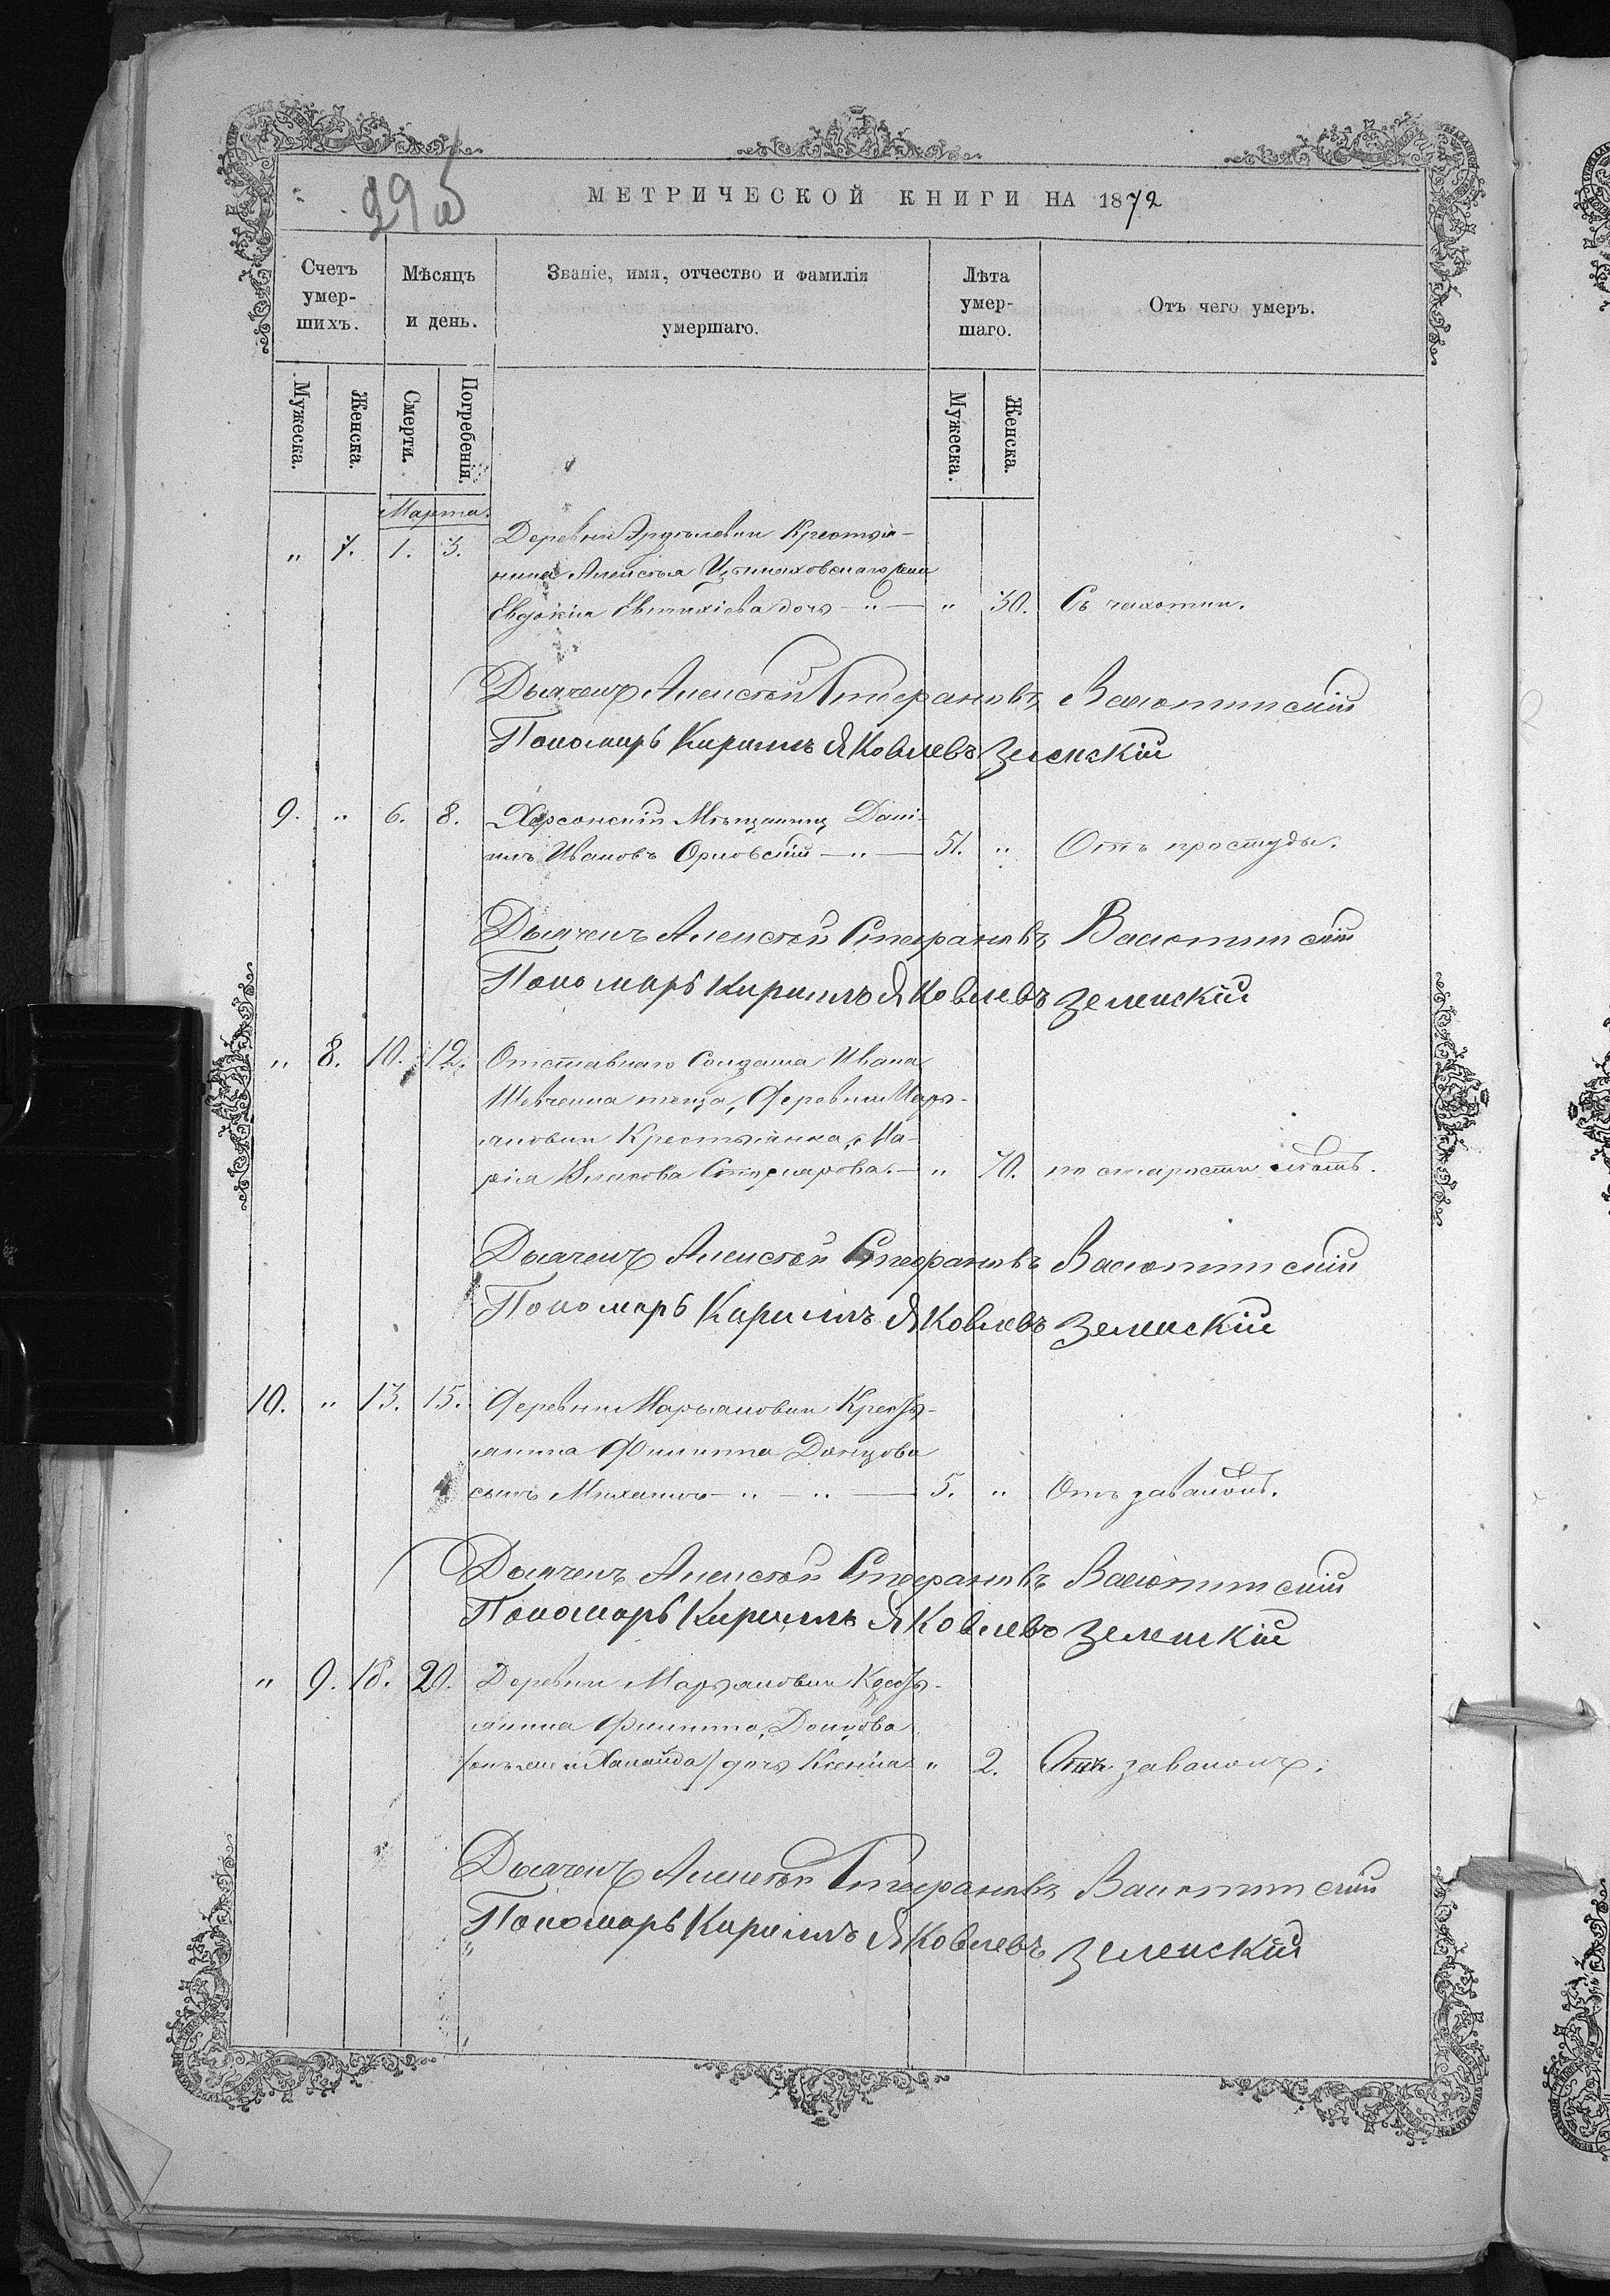 29 об
МЕТРИЧЕСКОЙ КНИГИ НА 1872
Счетъ умер-шихъ. Мѣсяцъ и день. Званіе, имя, отчество и фамилія умершаго. Лѣта умер-шаго. Отъ чего умеръ.
Мужеска. Женска. Смерти. Погребенія. Мужеска. Женска.
Марта.
„ 7. 1. 3. Деревни Крестья-
нина Алексѣя жена
Евдокія Евтихіева дочь — „ — „ 30. Съ чахотки.
Дьячекъ Алексѣй Стефановъ Васютинскій
Пономарь Кириллъ Яковлевъ Зеленскій
9. „ 6. 8. Херсонскій Мѣщанинъ Дані-
илъ Ивановъ Орловскій — „ — 51. „ Отъ простуды.
Дьячекъ Алексѣй Стефановъ Васютинскій
Пономарь Кириллъ Яковлевъ Зеленскій
„ 8. 10. 12. Отставнаго Солдата Ивана
Шевченка теща, Деревни Марь-
яновки Крестьянка, Ма-
рія Столярова. — „ 70. по старости лѣтъ.
Дьячекъ Алексѣй Стефановъ Васютинскій
Пономарь Кириллъ Яковлевъ Зеленскій
10. „ 13. 15. Деревни Марьяновки Крестъ-
янина Филиппа Донцова
сынъ Михаилъ — „ — „ — 5. „ Отъ заваловъ.
Дьячекъ Алексѣй Стефановъ Васютинскій
Пономарь Кириллъ Яковлевъ Зеленскій
„ 9. 18. 20. Деревни Марьяновки Кресть-
янина Филиппа Донцова
/онъ же и / дочь Ксенія „ 2. Отъ заваловъ.
Дьячекъ Алексѣй Стефановъ Васютинскій
Пономарь Кириллъ Яковлевъ Зеленскій